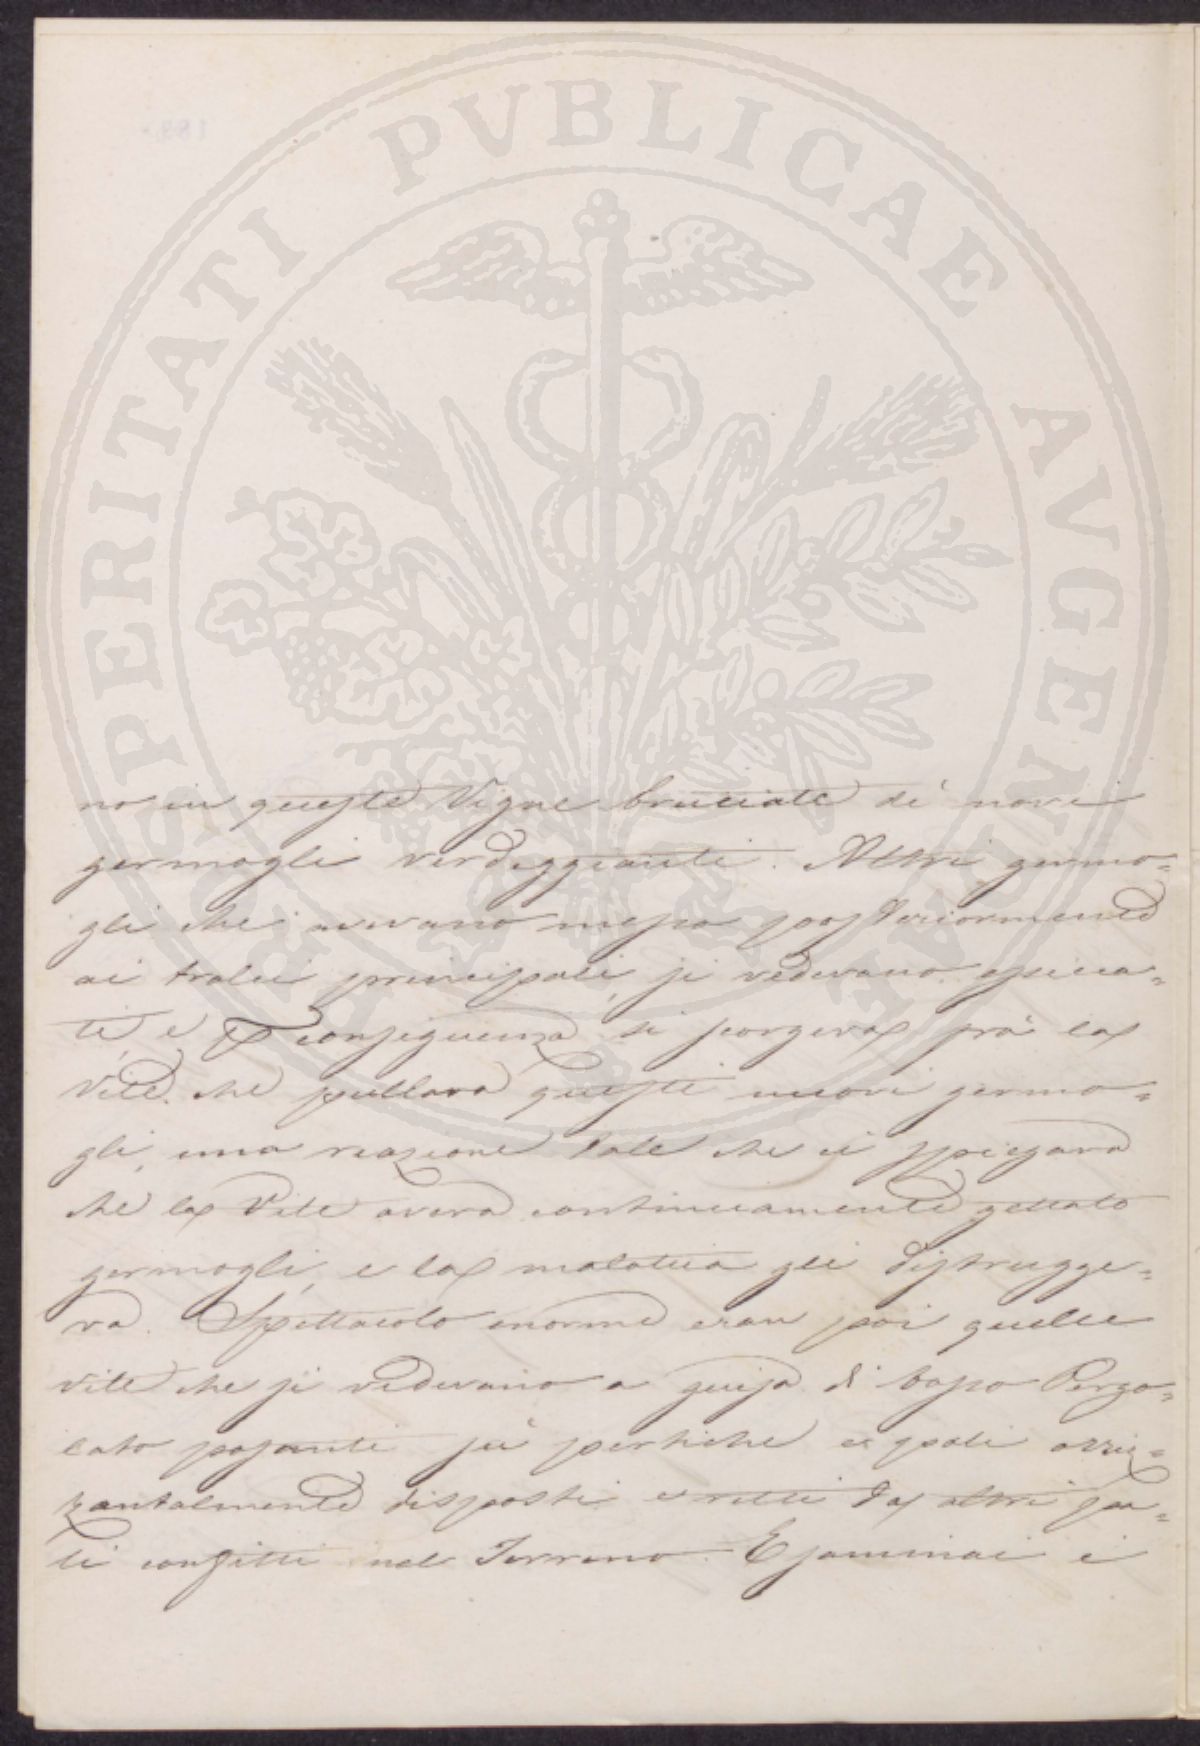 PROSPERITATI PVBLICAE AVGENDAE
no in queste Vigne bruciate di novi
germogli verdeggianti. Altri germo=
gli che avevano messo posteriormente
ai tralci principali, si vedevano essicca=
ti e consequenza si scorgeva frà la
Vite che pullava questi nuovi germo=
gli, una reazione tale che ci spiegava
che la Vite aveva continuamente gettato
germogli, e la malatia gli distrugge=
va. Spettacolo enorme eran poi quelle
vite che si vedevano a guisa di basso Pergo=
lato posanti sù pertiche e pali orriz=
zantalmente disposti e retti da altri pa=
li confitti nel Terreno. Esaminai i